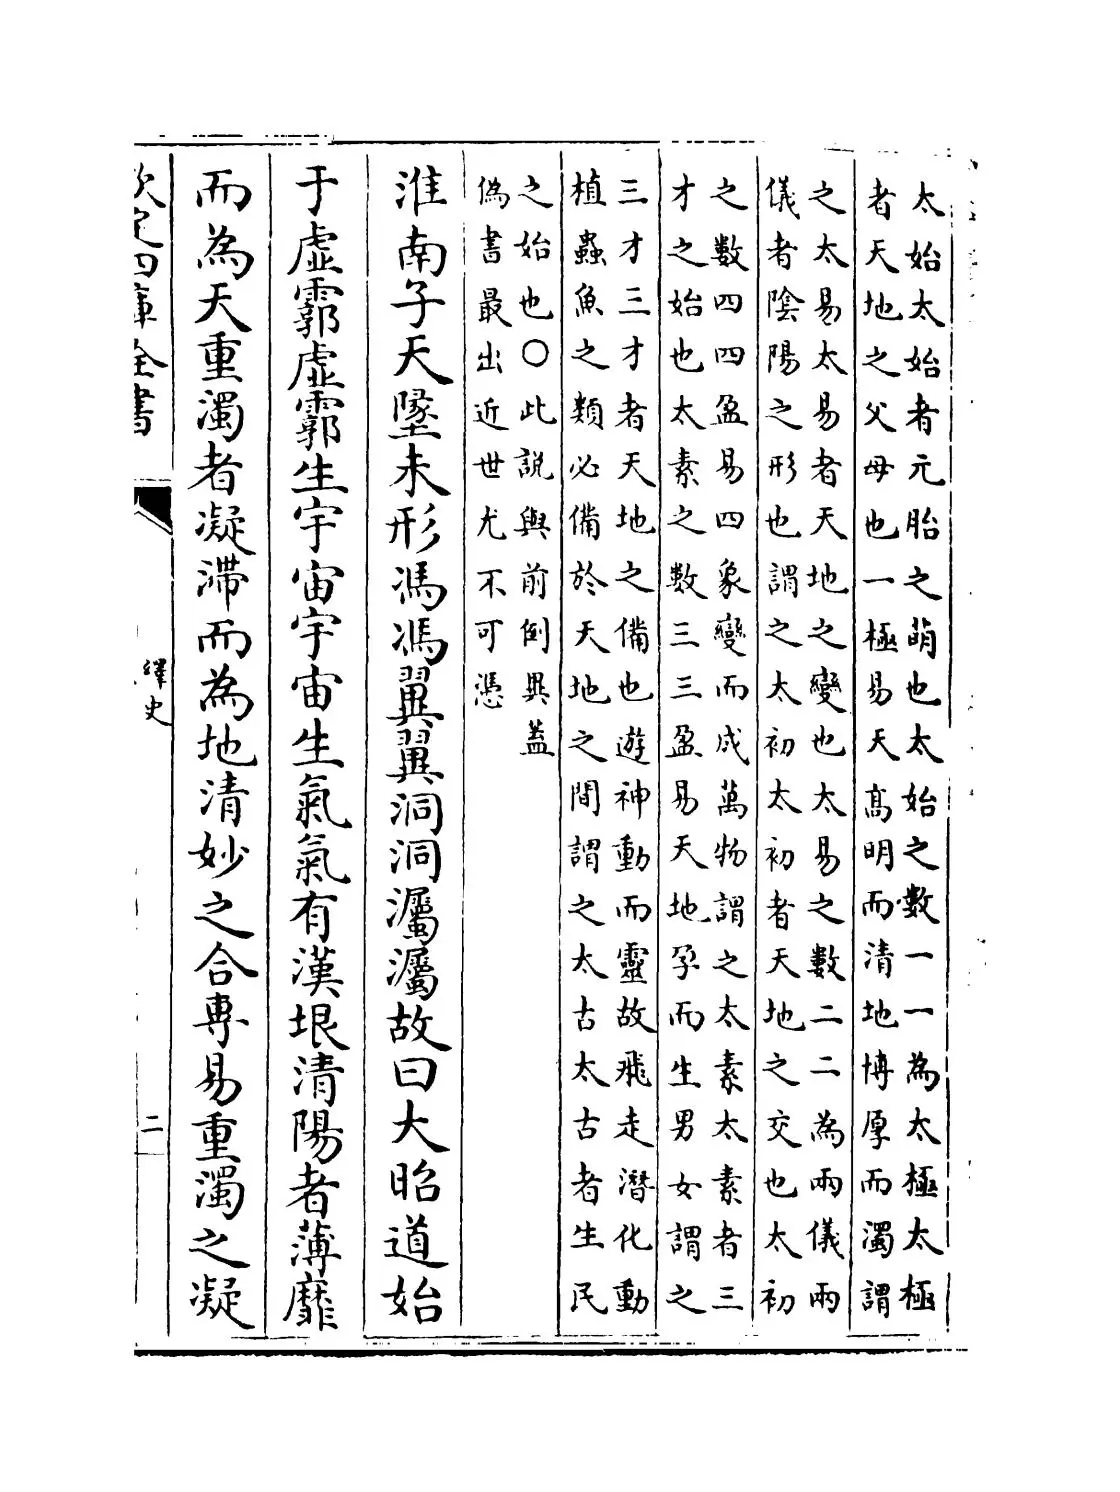 太始太始者元胎之萌也太始之數一一為太極太極
者天地之父母也一極易天髙明而清地博厚而濁謂
之太易太易者天地之變也太易之數二二為兩儀兩
儀者陰陽之形也謂之太初太初者天地之交也太初
之數四四盈易四象變而成萬物謂之太素太素者三
才之始也太素之數三三盈易天地孕而生男女謂之
三才三才者天地之備也遊神動而靈故飛走潛化動
植蟲魚之類必備於天地之間謂之太古太古者生民
之始也○此説與前倒異蓋
偽書最出近世尤不可憑
淮南子天墬未形馮馮翼翼洞洞灟灟故曰大昭道始
于虛霩虛霩生宇宙宇宙生氣氣有漢垠清陽者薄靡
而為天重濁者凝滯而為地清妙之合專易重濁之凝
欽定四庫全書
繹史
二